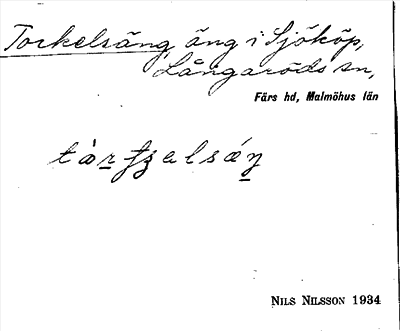 Torkelsäng, äng i Sjököp,
Långaröds sn,
Färs hd, Malmöhus län
NILS NILSSON 1934